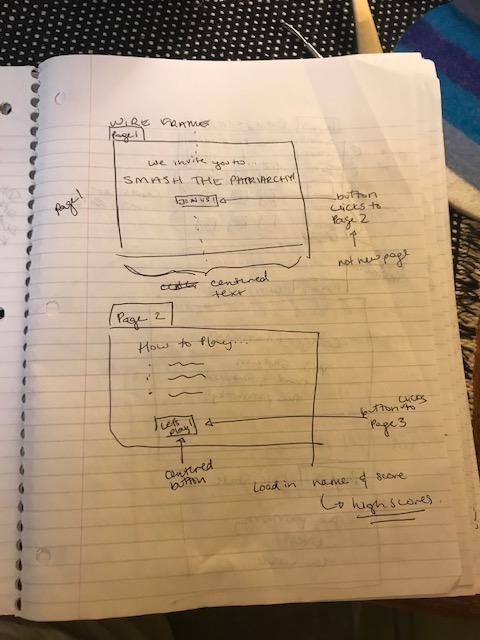 WIRE FRAME
Page 1
we invite you to...
SMASH THE PATRIARCHY!
JOIN US!
page 1
button
clicks to
Page 2
not new page
centered
text
Page 2
How to Play...
Lets
play!
clicks
button to
Page 3
centered
button
Load in name & score
↳ high scores.